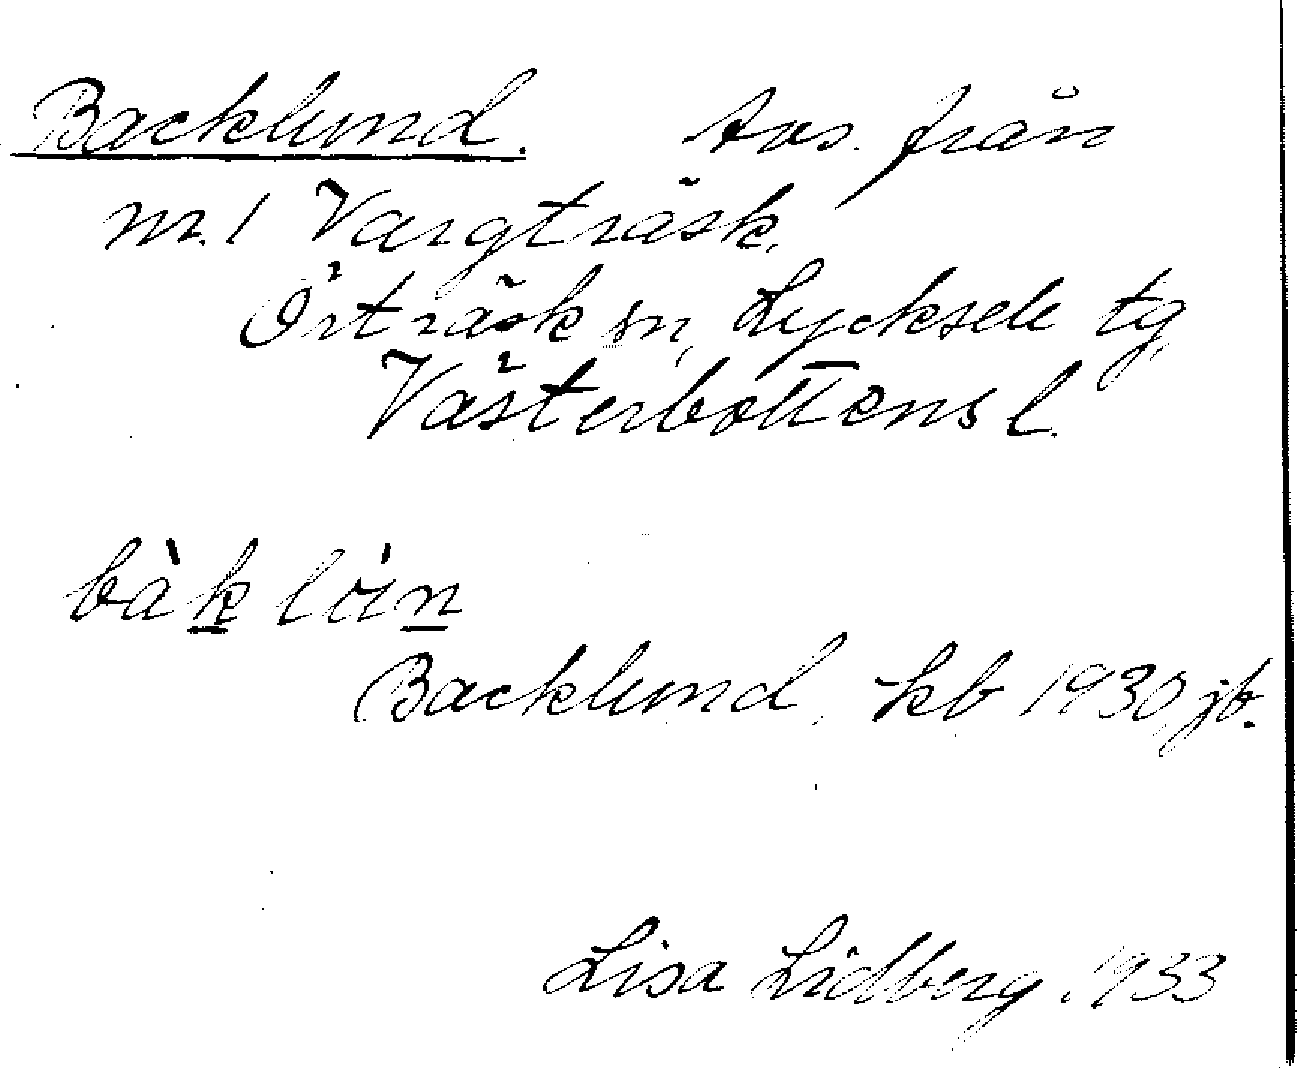 Backlund. Avs. från
nr. 1 Vargträsk,
Örträsk sn, Lycksele tg,
Västerbottens l.
bàk lön
Backlund, kb 1930, jb.
Lisa Lidberg. 1933